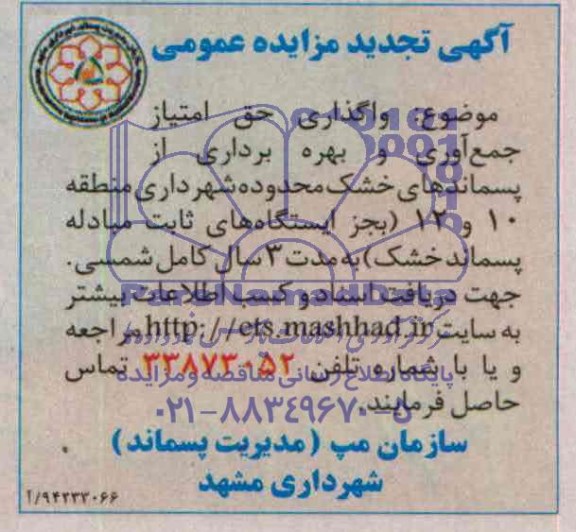 آگهی تجدید مزایده عمومی
موضوع: واگذاری حق امتیاز
جمع‌آوری و بهره برداری از
پسماندهای خشک محدوده شهرداری منطقه
۱۰ و ۱۲ (بجز ایستگاه‌های ثابت مبادله
پسماند خشک) به مدت ۳ سال کامل شمسی.
جهت دریافت اسناد و کسب اطلاعات بیشتر
به سایت http://ets.mashhad.ir مراجعه
و یا با شماره تلفن ۳۳۸۷۳۰۵۲ تماس
حاصل فرمایند.
سازمان مپ (مدیریت پسماند)
شهرداری مشهد
۹۴۲۳۳۰۶۶/آ
ParsNamadData
پایگاه اطلاع رسانی مناقصه و مزایده
۰۲۱-۸۸۳۴۹۶۷۰-۵